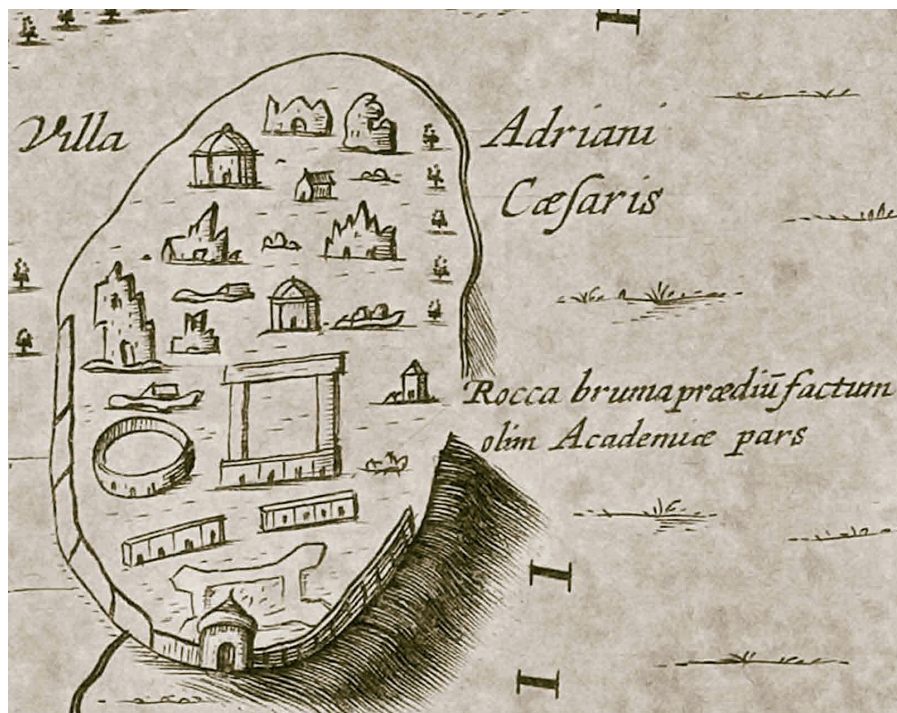 Villa Adriani
Cæſaris
Rocca bruma prædiū factum
olim Academiæ pars
I
I